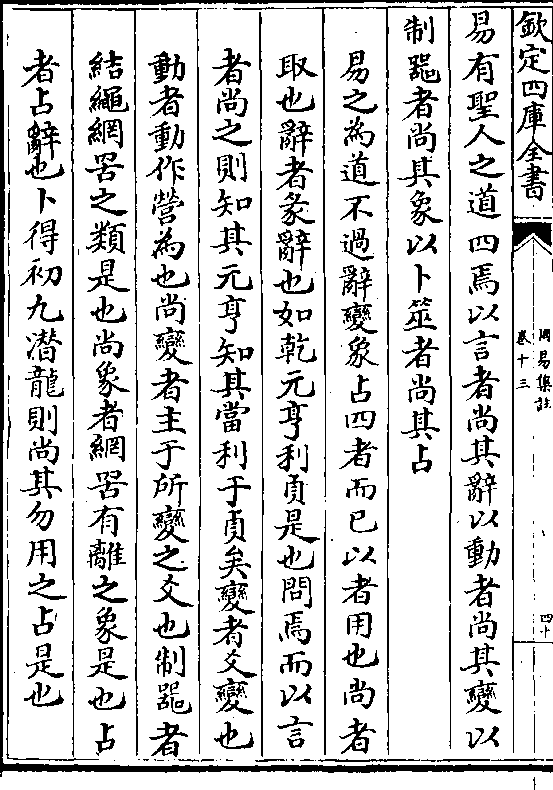 欽定四庫全書
周易集註
卷十三
四十
易有聖人之道四焉以言者尚其辭以動者尚其變以
制器者尚其象以卜筮者尚其占
易之為道不過辭變象占四者而已以者用也尚者
取也辭者彖辭也如乾元亨利貞是也問焉而以言
者尚之則知其元亨知其當利于貞矣變者爻變也
動者動作營為也尚變者主于所變之爻也制器者
結繩網罟之類是也尚象者網罟有離之象是也占
者占辭也卜得初九潛龍則尚其勿用之占是也